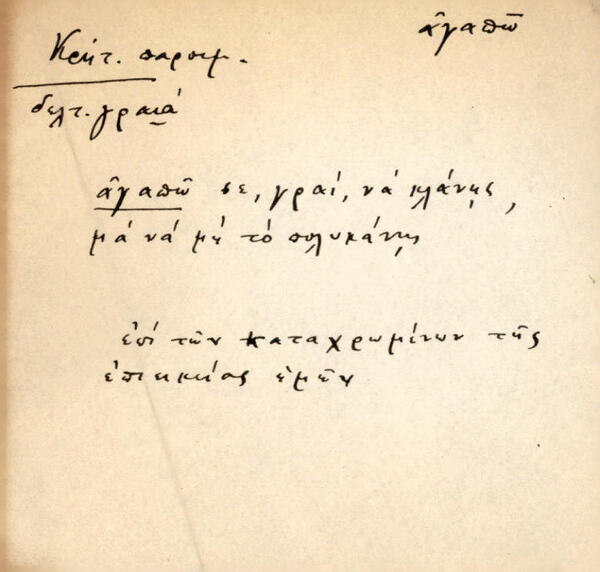 ἀγαπῶ
Κρητ. παροιμ.
δελτ. γραιά
ἀγαπῶ σε, γραί, νά κλάνῃς,
μά νά μή τό πολυκάνῃς
ἐπί τῶν καταχρωμένων τῆς
ἐπιεικείας ἡμῶν